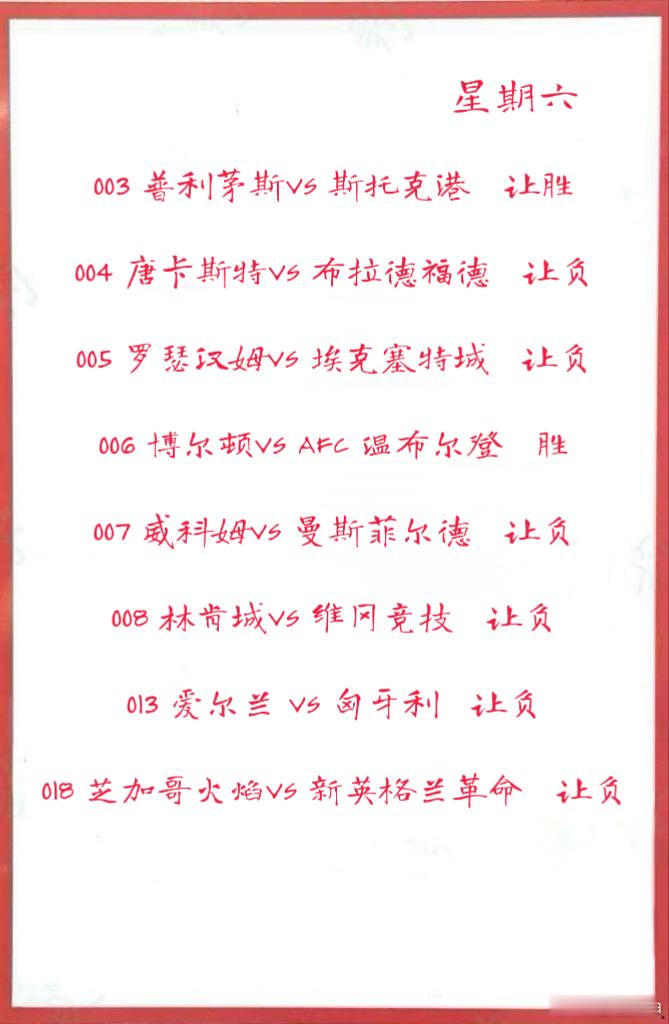 星期六
003 普利茅斯vs 斯托克港 让胜
004 唐卡斯特vs 布拉德福德 让负
005 罗瑟汉姆vs 埃克塞特城 让负
006 博尔顿vs AFC 温布尔登 胜
007 威科姆vs 曼斯菲尔德 让负
008 林肯城vs 维冈竞技 让负
013 爱尔兰 vs 匈牙利 让负
018 芝加哥火焰vs 新英格兰革命 让负